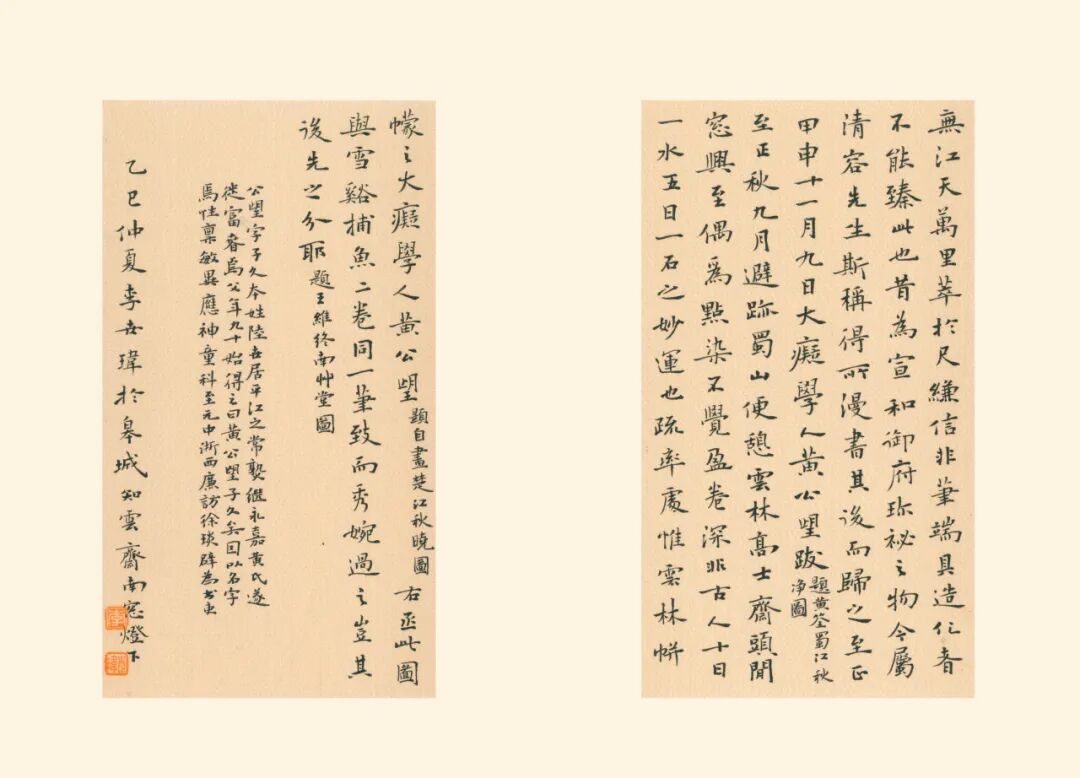 無江天萬里萃於尺縑信非筆端具造化者
不能臻此也昔為宣和御府珎祕之物今屬
清容先生斯稱得所漫書其後而歸之至正
甲申十一月九日大癡學人黃公望跋題黃筌蜀江秋
净圖
至正秋九月避跡蜀山便憩雲林高士齋頭閒
窓興至偶為點染不覺盈卷深非古人十日
一水五日一石之妙運也疏率處惟雲林帡
幪之大癡學人黃公望題自畫楚江秋曉圖右丞此圖
與雪谿捕魚二卷同一筆致而秀婉過之豈其
後先之分耶題王維終南艸堂圖
公望字子久本姓陸世居平江之常熟繼永嘉黃氏遂
徙富春焉公年九十始得之曰黃公望子久矣因以名字
焉性稟敏異應神童科至元中浙西廉訪徐琰辟為書吏
乙巳仲夏李世瑋於皋城知雲齋南窓燈下